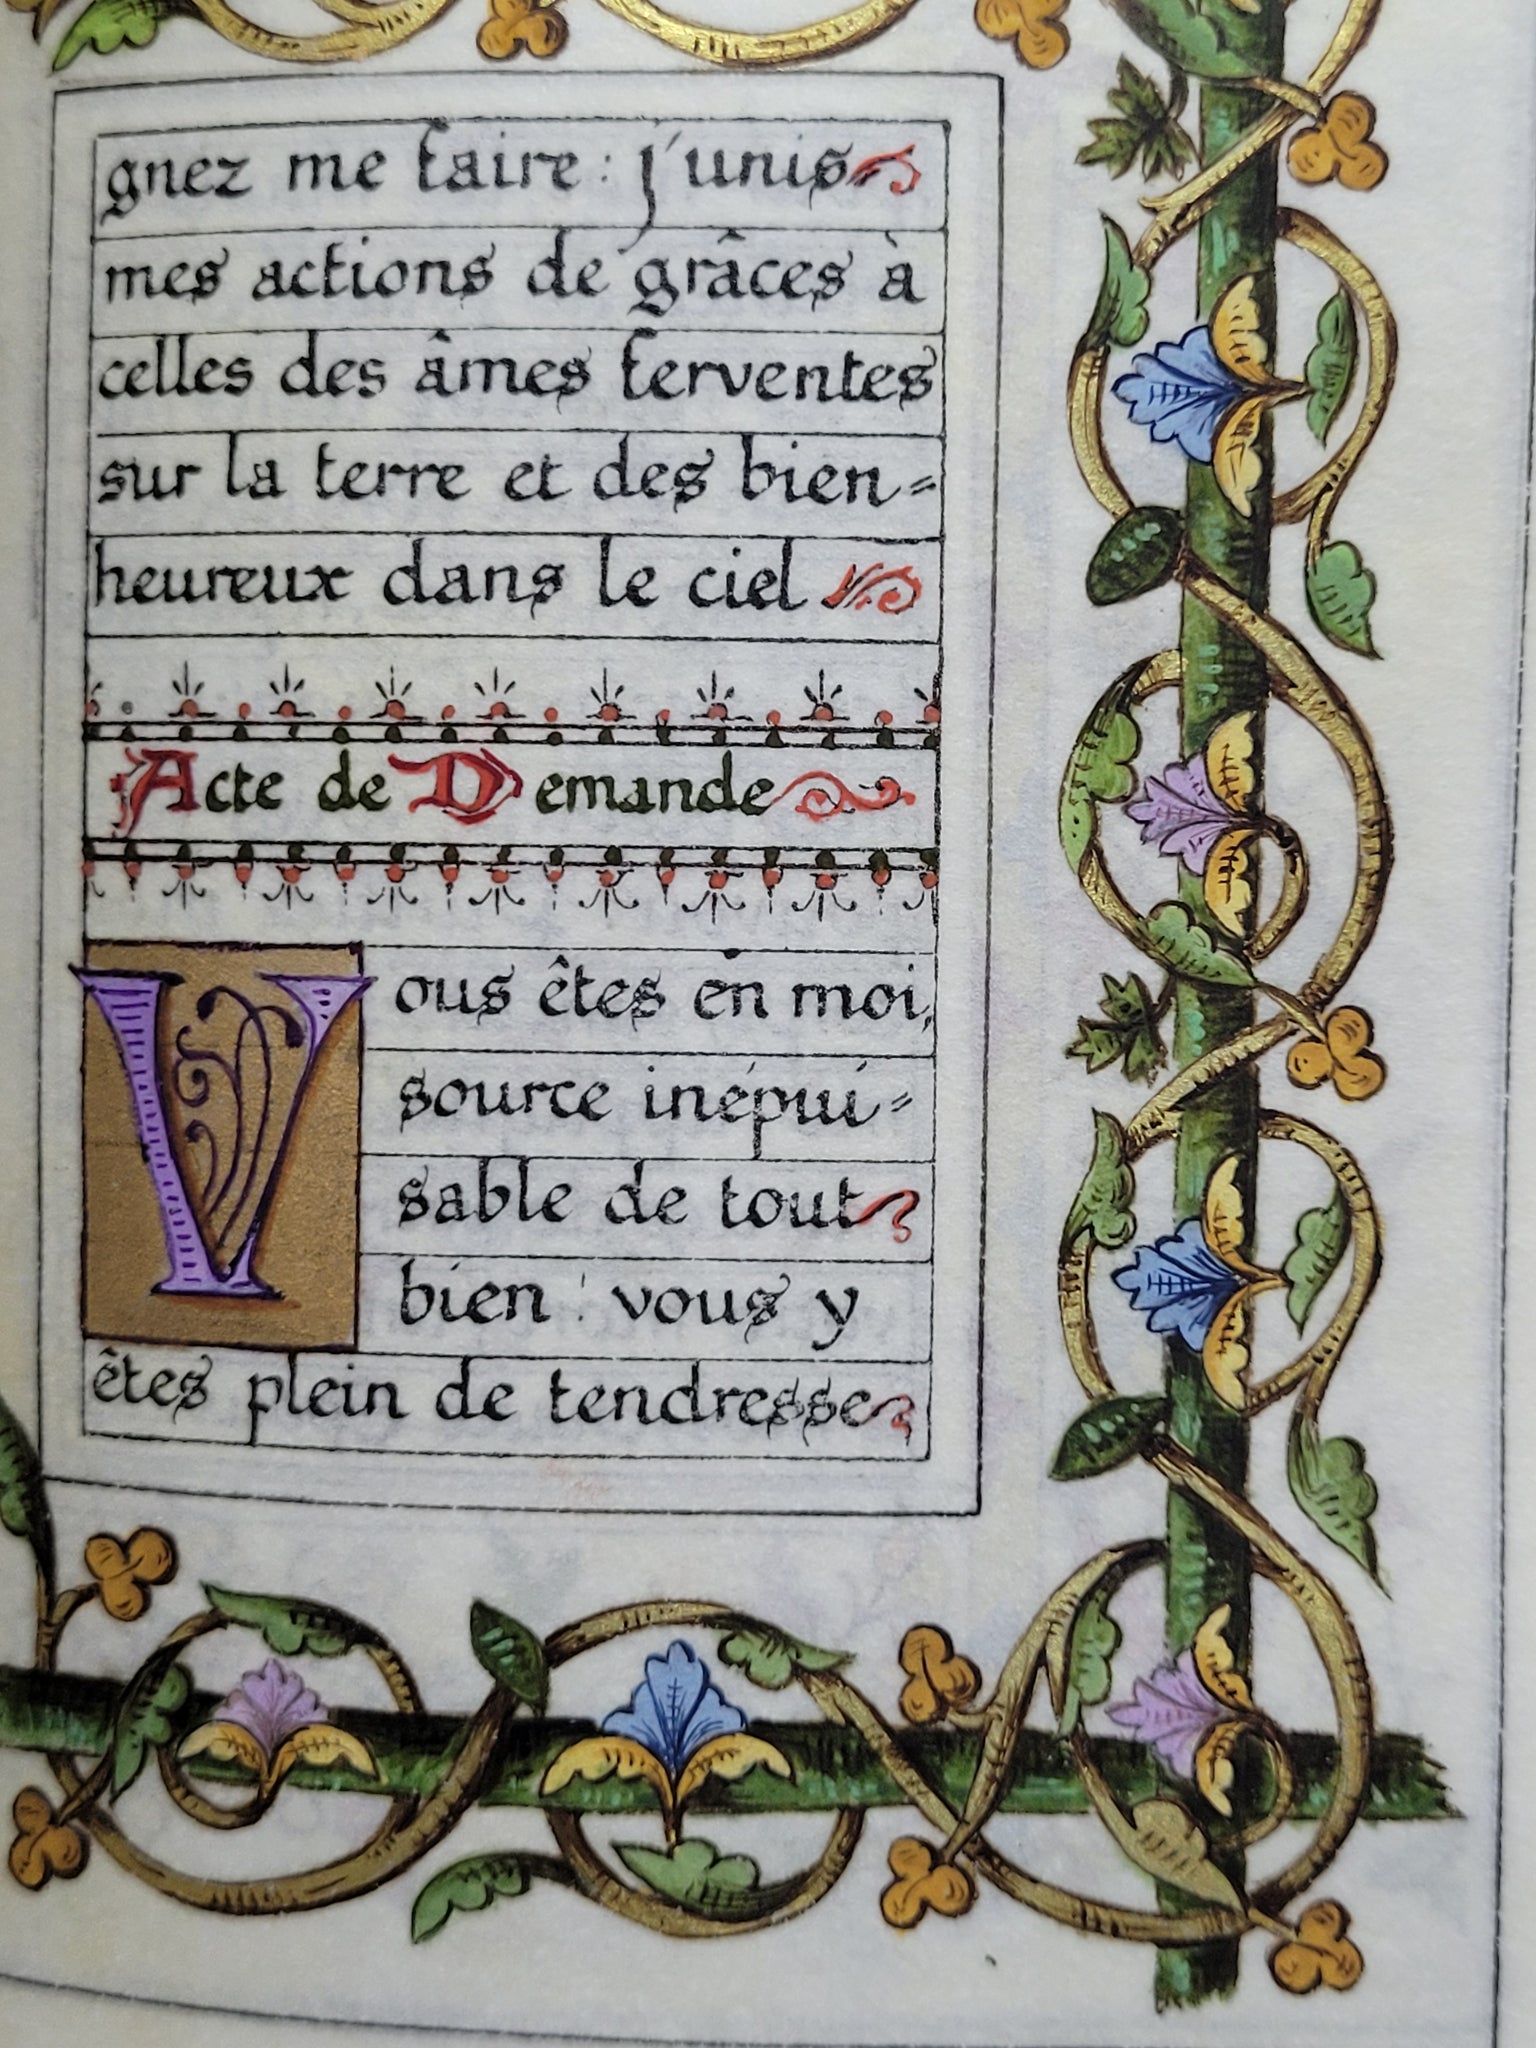 gnez me faire : j'unis
mes actions de grâces à
celles des âmes ferventes
sur la terre et des bien=
heureux dans le ciel
Acte de Demande
Vous êtes en moi,
source inépui=
sable de tout
bien : vous y
êtes plein de tendresse